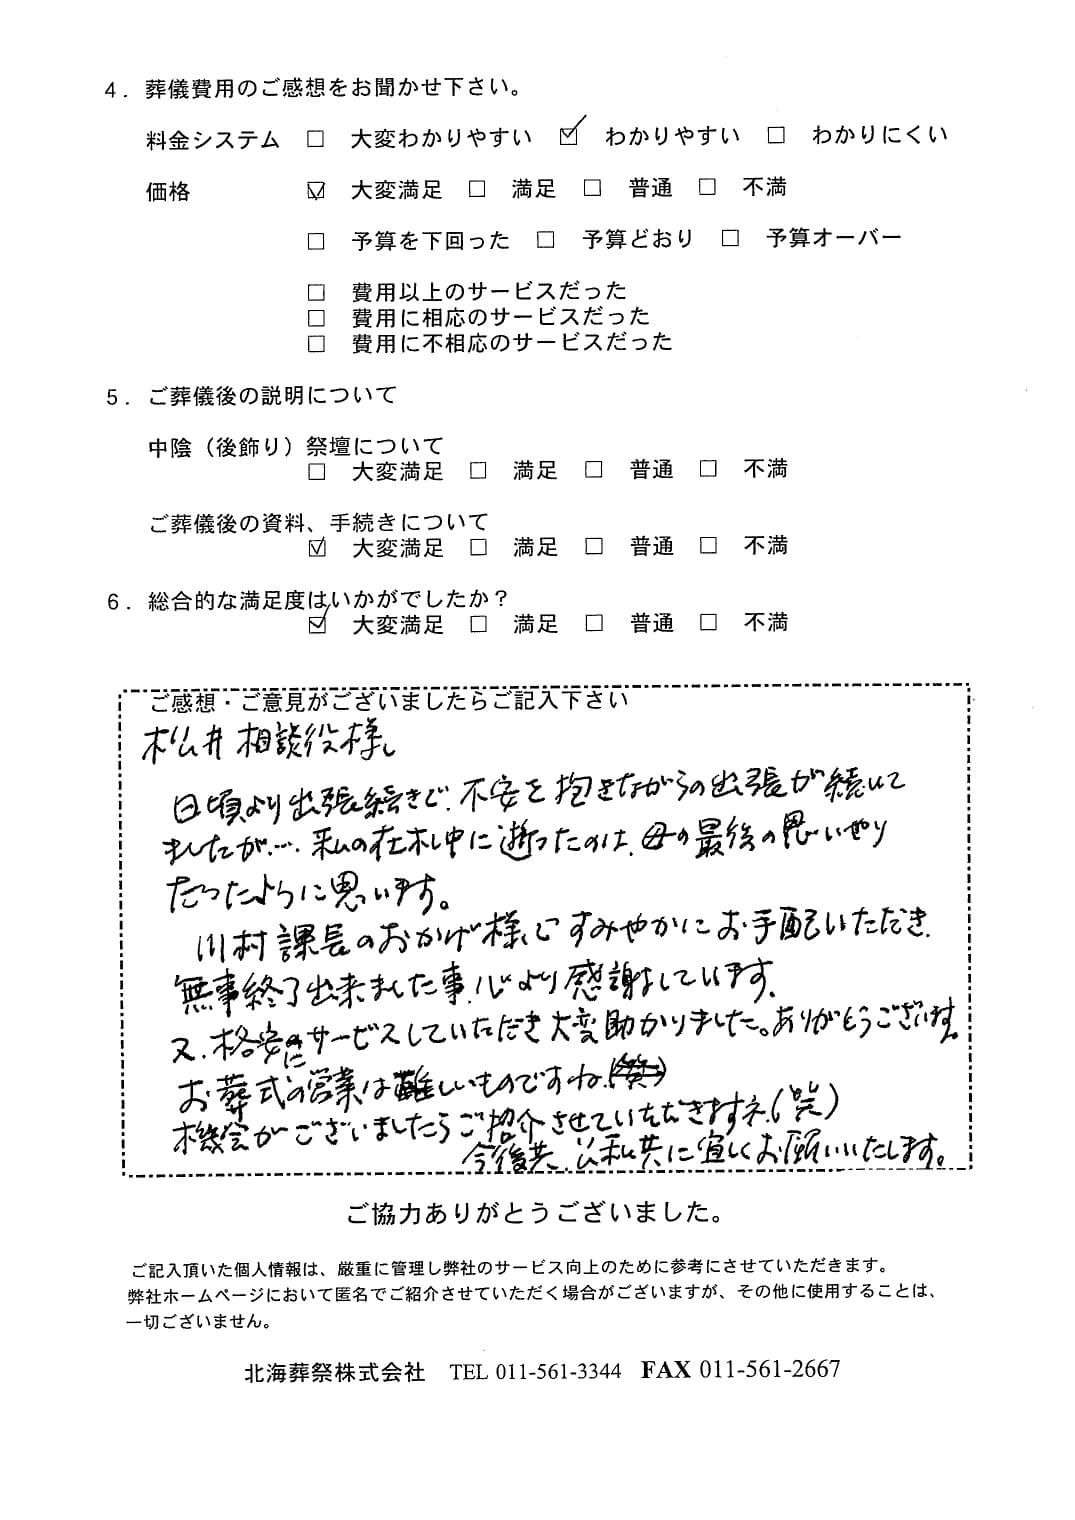 4．葬儀費用のご感想をお聞かせ下さい。
料金システム □ 大変わかりやすい ☑ わかりやすい □ わかりにくい
価格 ☑ 大変満足 □ 満足 □ 普通 □ 不満
□ 予算を下回った □ 予算どおり □ 予算オーバー
□ 費用以上のサービスだった
□ 費用に相応のサービスだった
□ 費用に不相応のサービスだった
5．ご葬儀後の説明について
中陰（後飾り）祭壇について
□ 大変満足 □ 満足 □ 普通 □ 不満
ご葬儀後の資料、手続きについて
☑ 大変満足 □ 満足 □ 普通 □ 不満
6．総合的な満足度はいかがでしたか？
☑ 大変満足 □ 満足 □ 普通 □ 不満
ご感想・ご意見がございましたらご記入下さい
松井相談役様
日頃より出張続きで、不安を抱きながらの出張が続いて
ましたが…、私の在札中に逝ったのは、母の最後の思いやり
だったように思います。
川村課長のおかげ様で すみやかにお手配いただき、
無事終了出来ました事、心より感謝しています。
又、格安にサービスしていただき大変助かりました。ありがとうございます。
お葬式の営業は難しいものですね。
機会がございましたらご紹介させていただきますネ。(笑)
今後共、公私共に宜しくお願いいたします。
ご協力ありがとうございました。
ご記入頂いた個人情報は、厳重に管理し弊社のサービス向上のために参考にさせていただきます。
弊社ホームページにおいて匿名でご紹介させていただく場合がございますが、その他に使用することは、
一切ございません。
北海葬祭株式会社 TEL 011-561-3344 FAX 011-561-2667